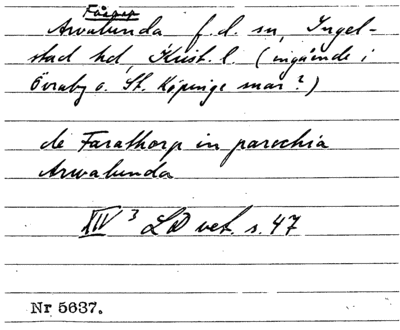 Fårarp
Arwalunda f. d. sn, Ingel-
stad hd, Krist. l. (ingående i
Övraby o. St. Köpinge snar?)
de Farathorp in parochia
Arwalunda
XIV³ LD vet. s. 47
Nr 5637.